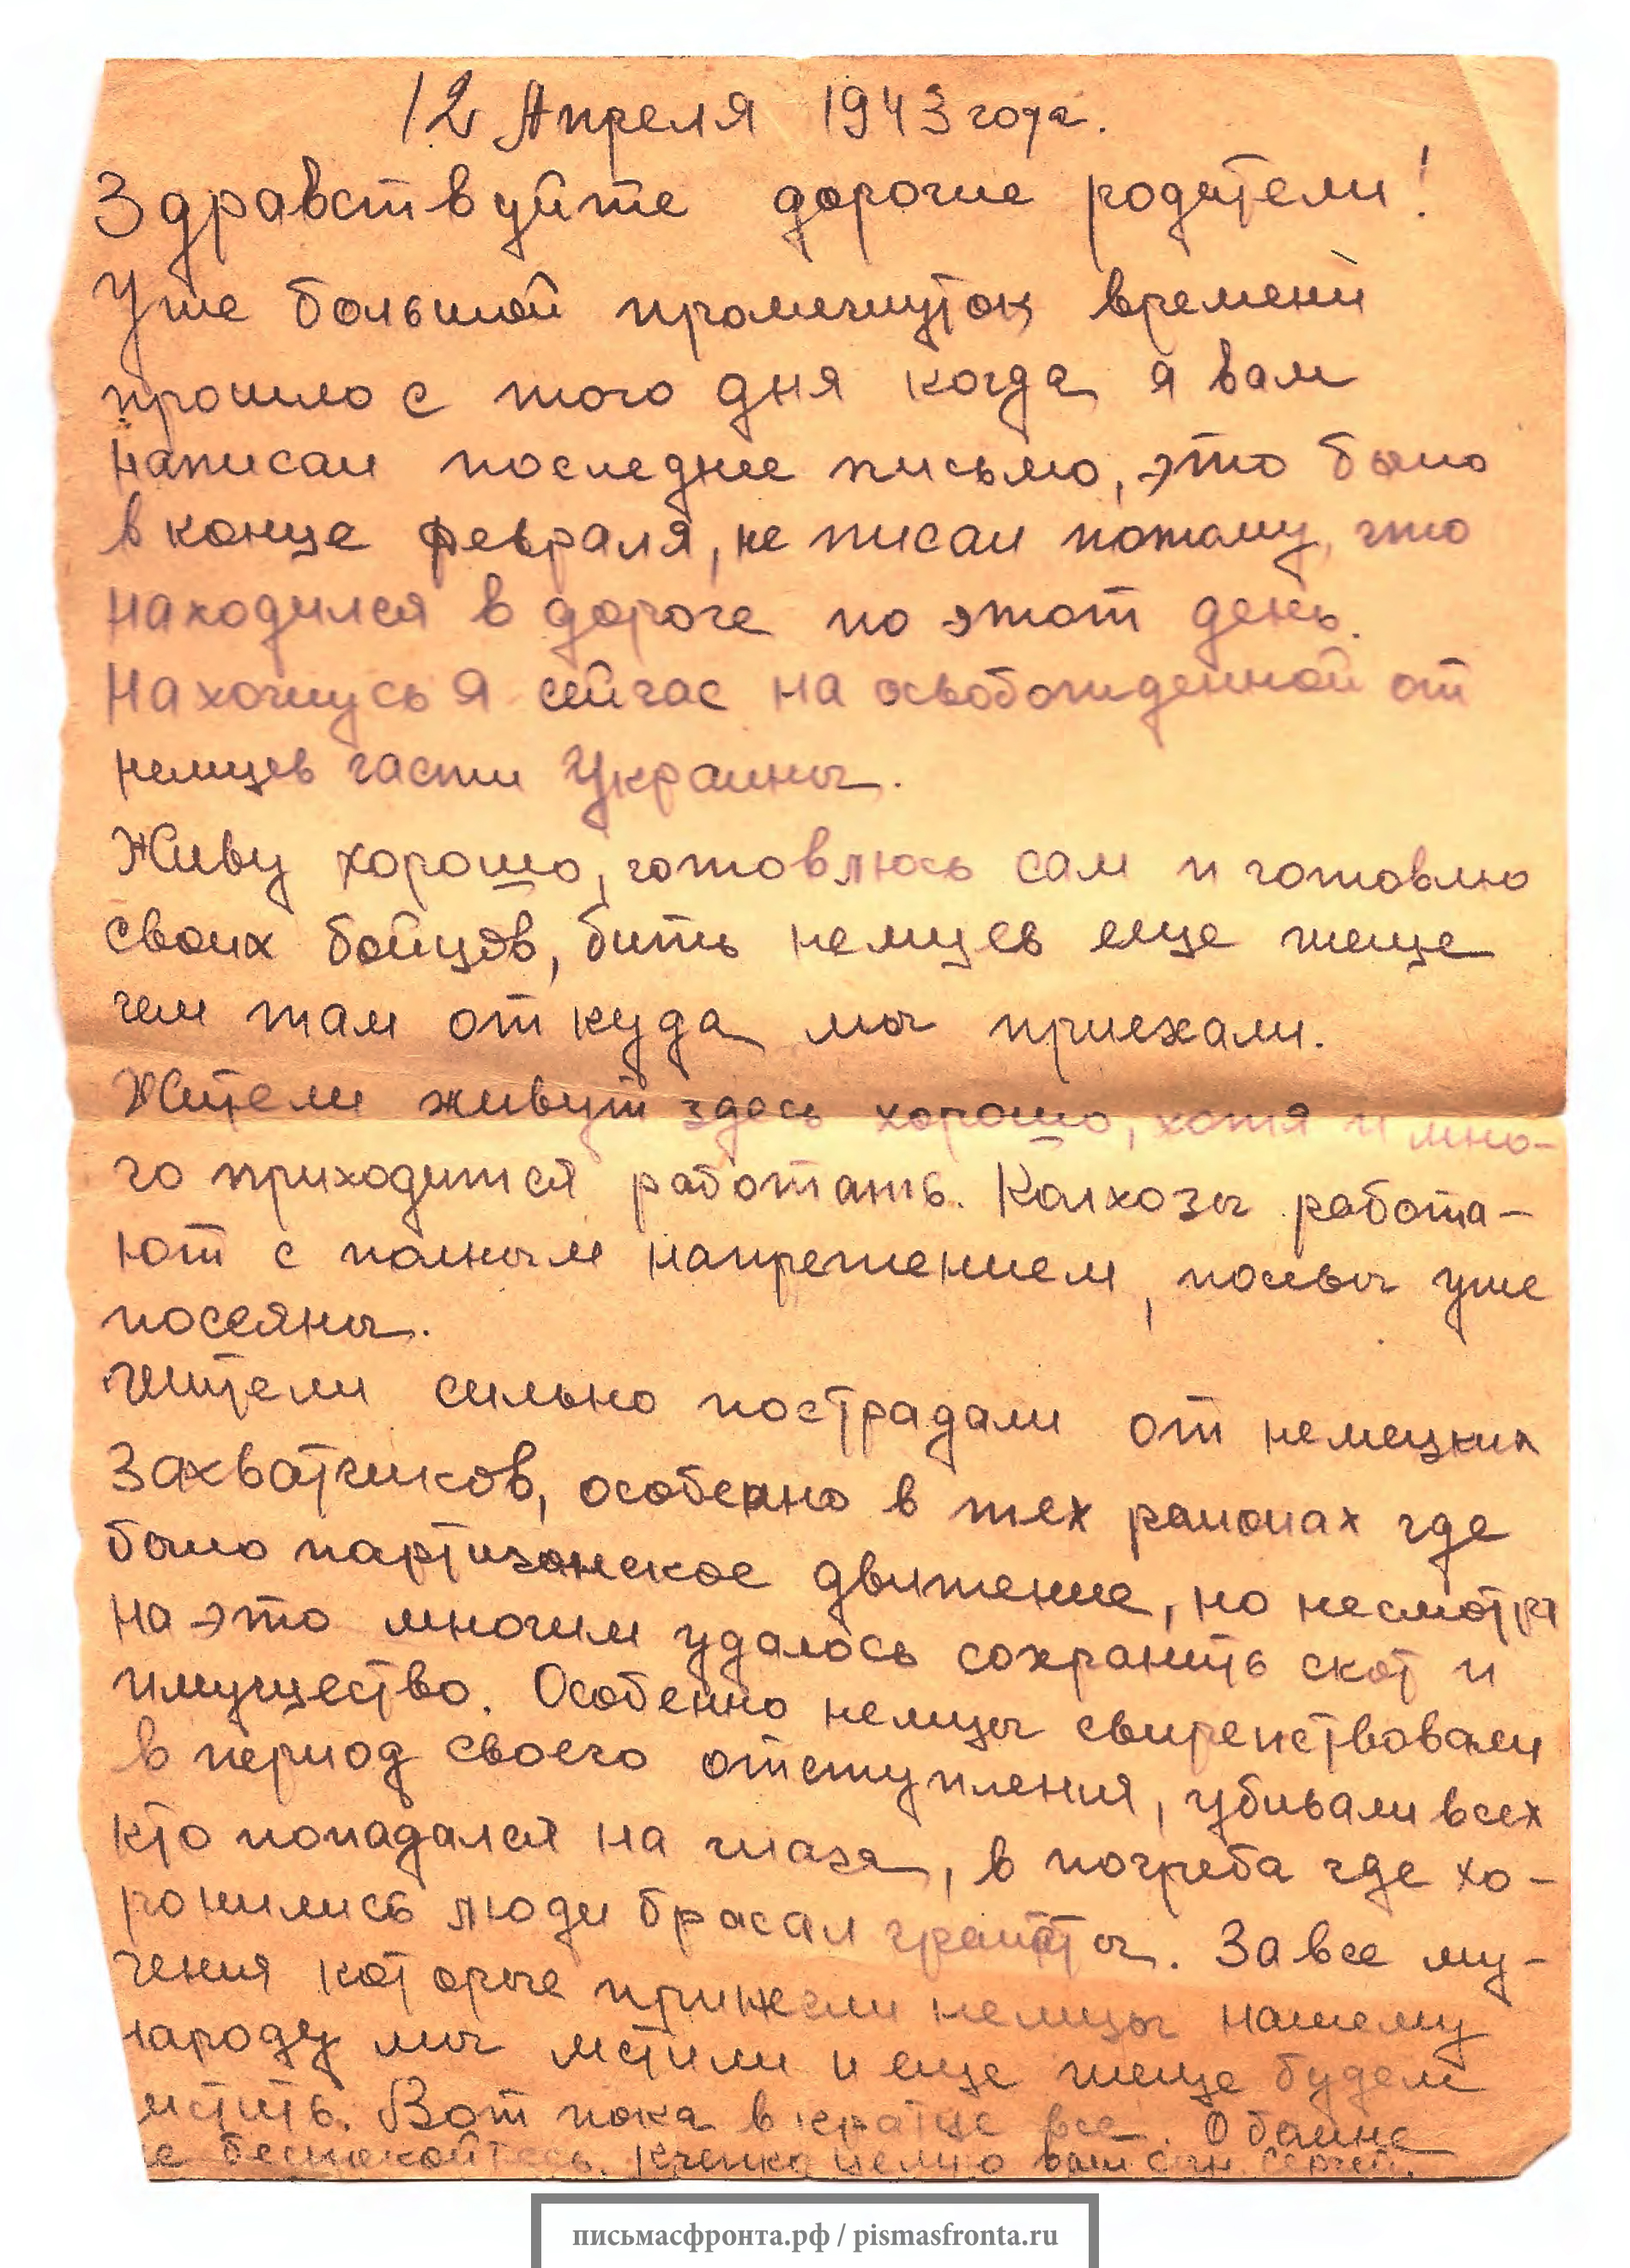 12 Апреля 1943 года.
Здравствуйте дорогие родители!
Уже большой промежуток времени
прошло с того дня когда я вам
написал последнее письмо, это было
в конце февраля, не писал потому, что
находился в дороге по этот день.
Нахожусь я сейчас на освобожденной от
немцев части Украины.
Живу хорошо, готовлюсь сам и готовлю
своих бойцов, бить немцев еще жеще
чем там откуда мы приехали.
Жители живут здесь хорошо, хотя и мно-
го приходится работать. Колхозы работа-
ют с полным напрежением, посевы уже
посеяны.
Жители сильно пострадали от немецких
захватчиков, особенно в тех районах где
было партизанское движение, но несмотря
на это многим удалось сохранить скот и
имущество. Особенно немцы свирепствовали
в период своего отступления, убивали всех
кто попадался на глаза, в погреба где хо-
ронились люди брасал гранаты. За все му-
чения которые принесли немцы нашему
народу мы мстили и еще жеще будем
мстить. Вот пока вкратце все. О банне
не беспокойтесь. Крепко целую ваш сын Сергей.
письмасфронта.рф / pismasfronta.ru